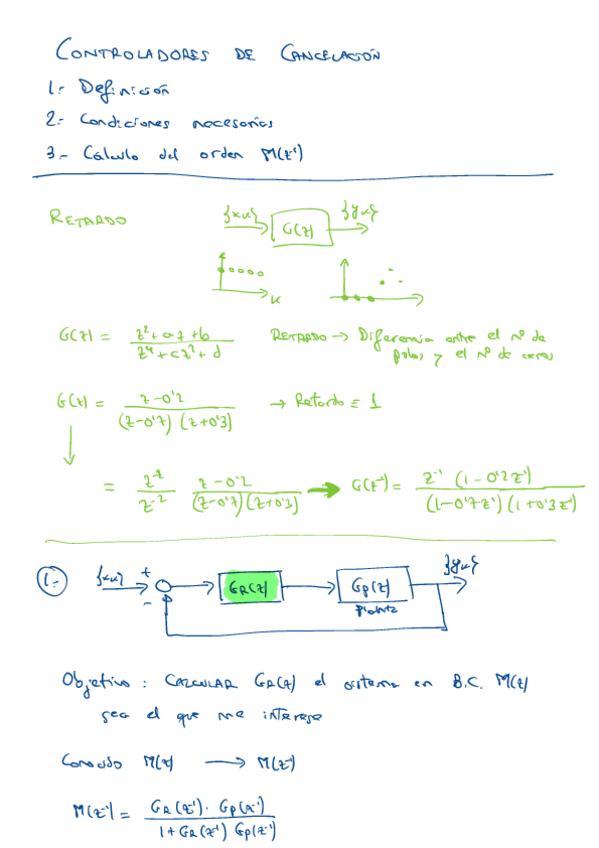 CONTROLADORES DE CANCELACIÓN
1.- Definición
2.- Condiciones necesarias
3.- Cálculo del orden M(z⁻¹)
RETARDO {xk} G(z) {yk}
K
G(z) = (z² + az + b) / (z⁴ + cz² + d) RETARDO → Diferencia entre el nº de
polos y el nº de ceros
G(z) = (z - 0'2) / ((z - 0'7) (z + 0'3)) → Retardo = 1
= z⁻² / z⁻² (z - 0'2) / ((z - 0'7)(z + 0'3)) → G(z⁻¹) = z⁻¹ (1 - 0'2z⁻¹) / ((1 - 0'7z⁻¹)(1 + 0'3z⁻¹))
1.- {xk} + - GR(z) Gp(z) {yk}
Planta
Objetivo : CALCULAR GR(z) el sistema en B.C. M(z)
sea el que me interese
Conocido M(z) → M(z⁻¹)
M(z⁻¹) = GR(z⁻¹) · Gp(z⁻¹) / (1 + GR(z⁻¹) Gp(z⁻¹))